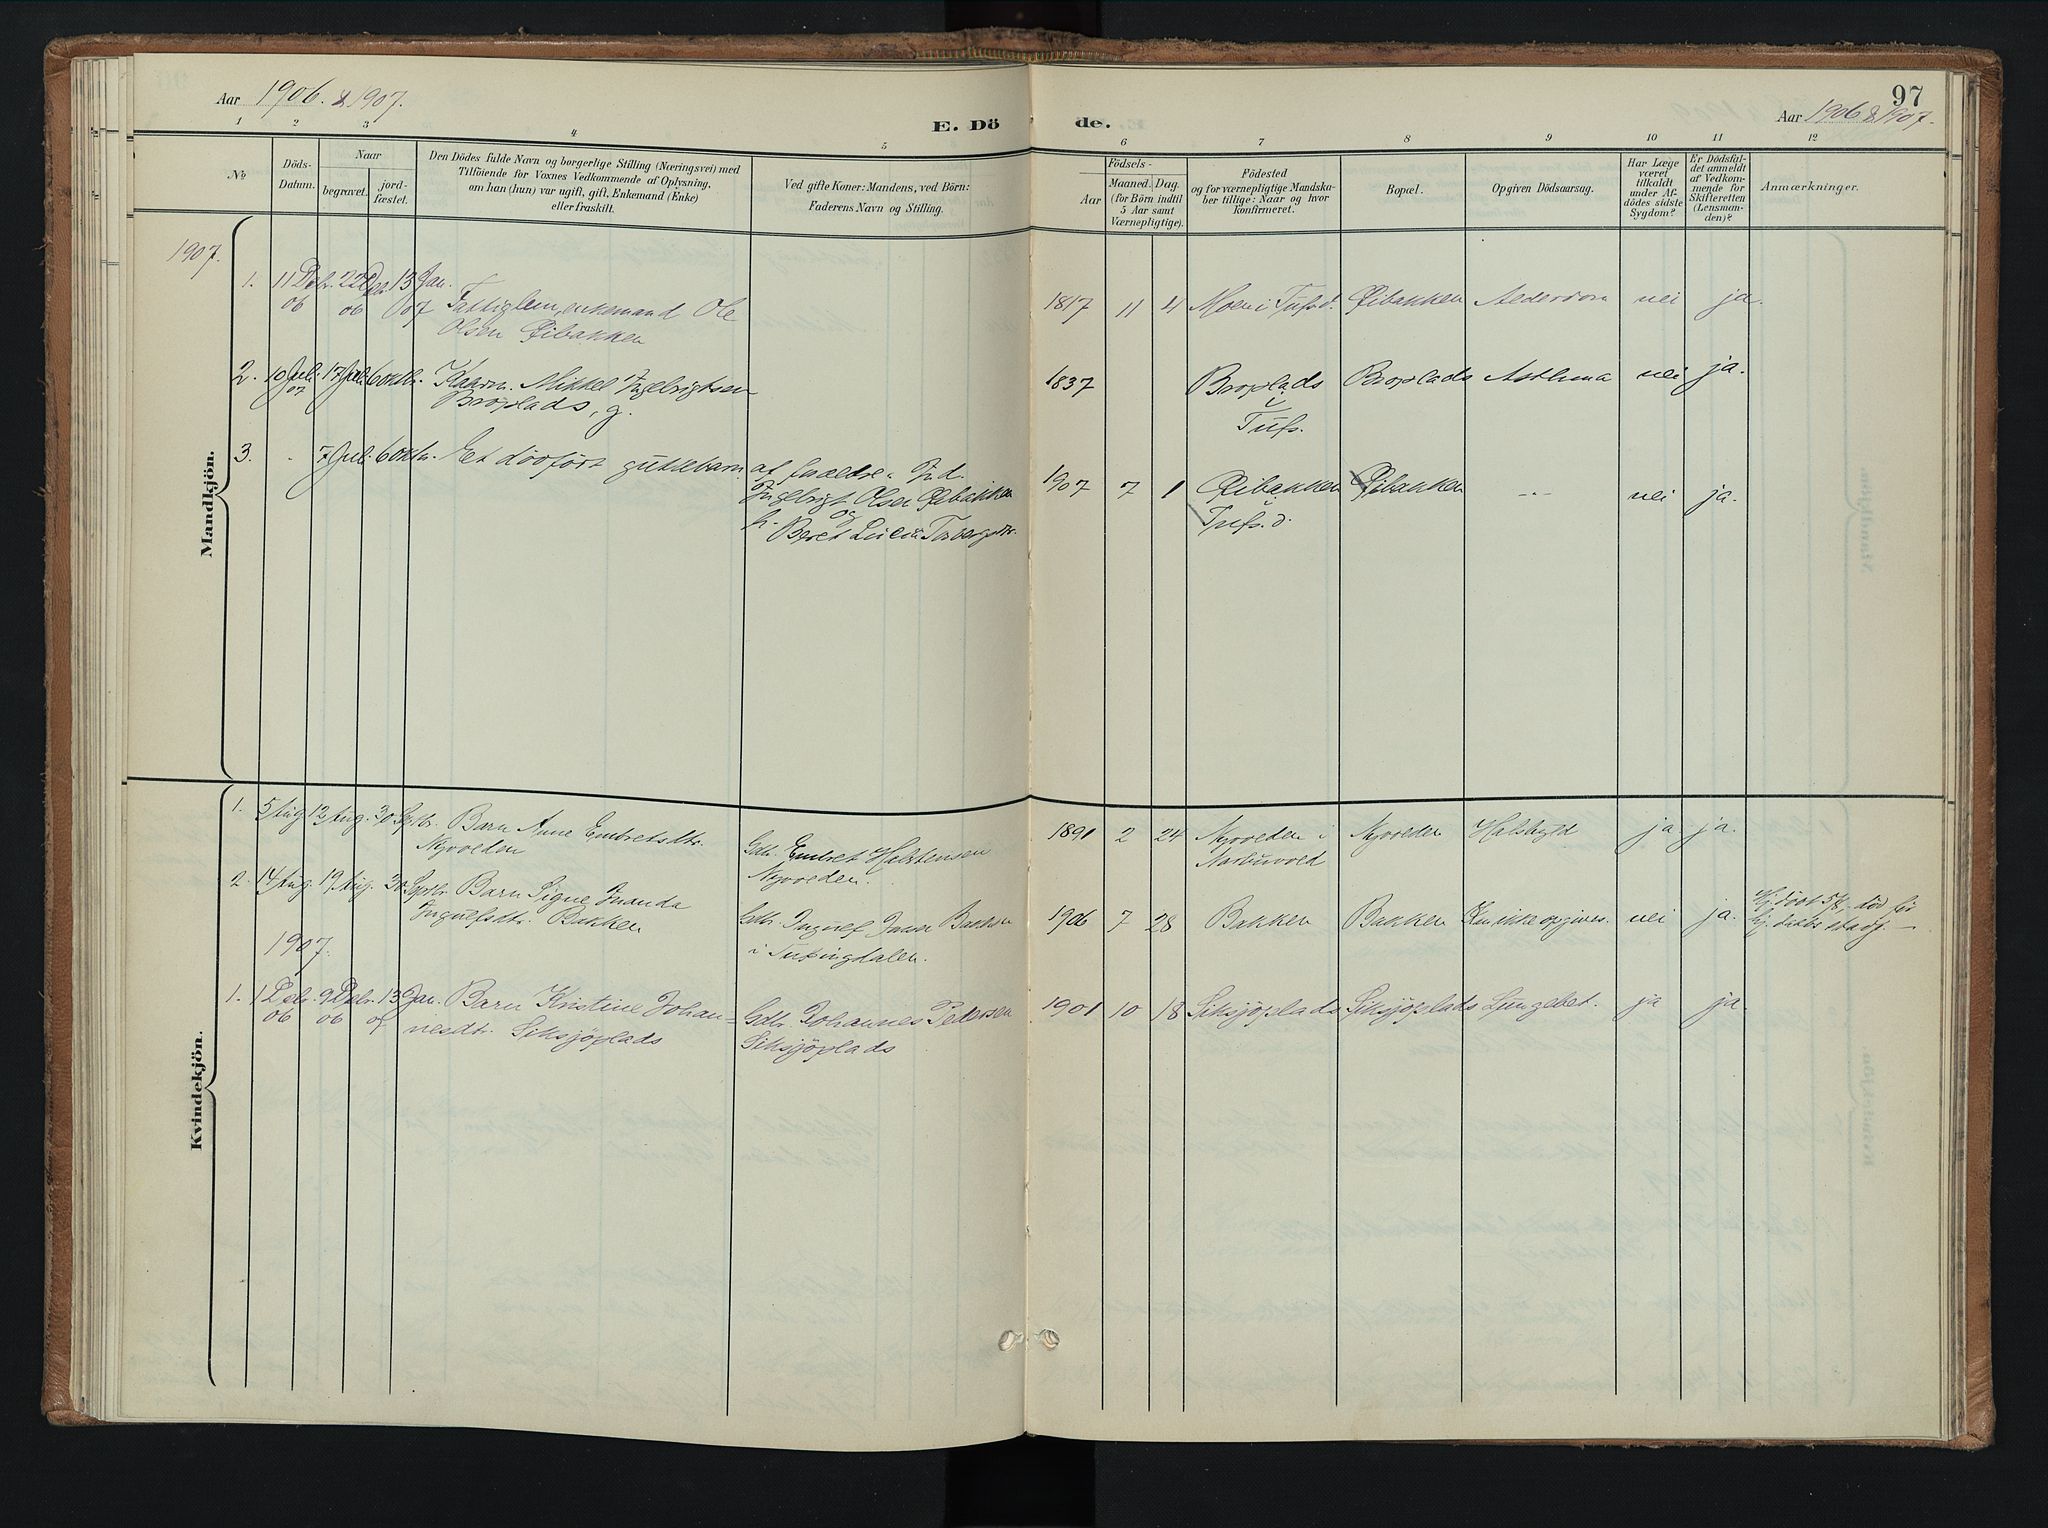 97
Aar 1906. & 1907.
E. Dö
de.
Aar 1906 & 1907.
1 2 3 4 5 6 7 8 9 10 11 12
No
Döds-
Datum.
Naar
begravet.
jord-
fæstet.
Den Dödes fulde Navn og borgerlige Stilling (Næringsvei) med
Tilföiende for Voxnes Vedkommende af Oplysning,
om han (hun) var ugift, gift, Enkemand (Enke)
eller fraskilt.
Ved gifte Koner: Mandens, ved Börn:
Faderens Navn og Stilling.
Födsels-
Aar
Maaned. Dag.
(for Börn indtil
5 Aar samt
Værnepligtige).
Födested
og for værnepligtige Mandska-
ber tillige: Naar og hvor
konfirmeret.
Bopæl.
Opgiven Dödsaarsag.
Har Læge
været
tilkaldt
under Af-
dödes sidste
Sygdom?
Er Dödsfal-
det anmeldt
af Vedkom-
mende for
Skifteretten
(Lensman-
den)?
Anmærkninger.
Mandkjön.
1907.
1. 11 Dcbr. 22 Dcbr. 13 Jan.
06 06 07 Fattiglem, enkemand Ole
Olsen Øibakken
1817 11 4 Moen i Tufs.d. Øibakken Alderdom nei ja.
2. 10 Juli 17 Juli 6 Oktbr. Kaarm. Mikkel Ingebrigtsen
07 Broplads, g.
1837 Broplads Broplads Asthma nei ja.
i
Tufs.
3. 7 Juli 6 Oktbr. Et dødført guttebarn af forældre: Gd.
Ingebrigt Olsen Øibakken
og
h. Beret Lucia Torbergsdtr.
1907 7 1 Øibakken Øibakken -"- nei ja.
i
Tufs.d.
Kvindekjön.
1. 5 Aug 12 Aug. 30 Septbr. Barn Anne Embretsdtr.
Nyvolden
Gdbr. Embret Halstensen
Nyvolden.
1891 2 24 Nyvolden i Nyvolden Halsbyld ja ja.
Narbuvold
2. 14 Aug. 19 Aug. 30 Septbr. Barn Signe Inanda
Ingulfsdtr. Bakken
Gdbr. Ingulf Jansen Bakken
i Tufsingdalen.
1906 7 28 Bakken Bakken Kan ikke opgives. nei ja. Hj. døbt 5/8, død før
hj. daabs stadf. —
1907.
1. 1 Dcbr. 9 Dcbr. 13 Jan. Barn Kristine Johan-
06 06 07 nesdtr. Siksjöplads
Gdbr. Johannes Pedersen
Siksjöplads
1901 10 18 Siksjöplads Siksjöplads Lungebet. ja ja.